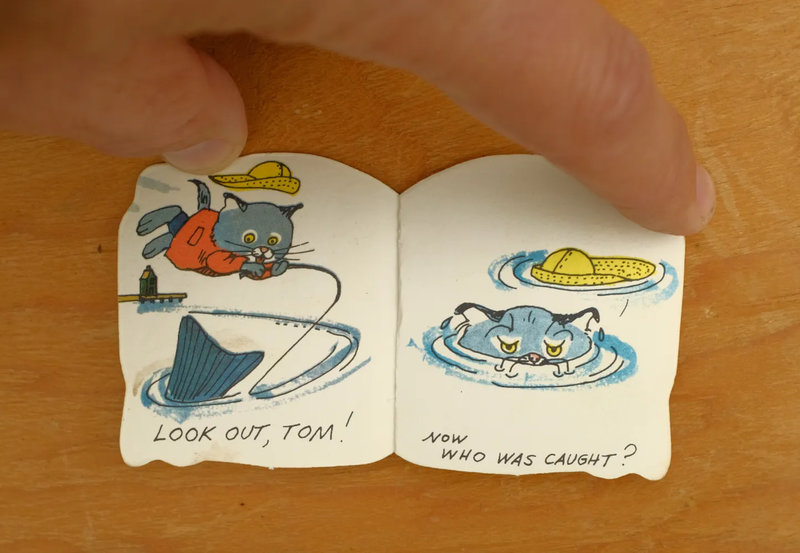 LOOK OUT, TOM!
NOW
WHO WAS CAUGHT?